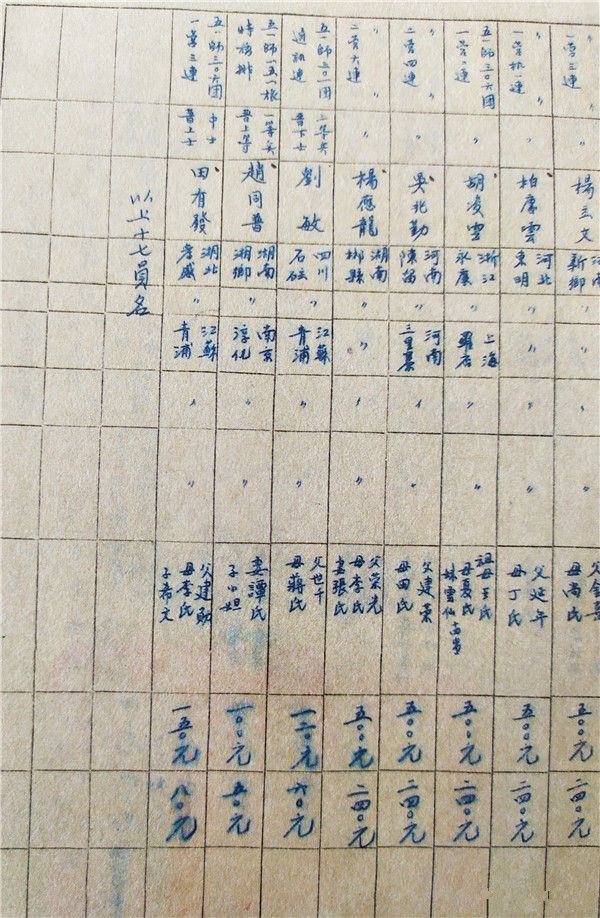 一营三連
〃
楊立文
河南
新鄉
〃
〃
〃
父金
母尚氏
五〇〇元
二四〇元
〃
一营机一連
〃
柏厚雲
河北
東明
〃
〃
〃
〃
父延年
母丁氏
五〇〇元
二四〇元
五一師三〇六團
一营一連
〃
胡凌雲
浙江
永康
〃
上海
羅店
〃
〃
祖母王氏
母夏氏
妹雲仙
五〇〇元
二四〇元
〃
二营四連
〃
吳兆勤
河南
陳留
〃
河南
三里
〃
〃
父建業
母田氏
五〇〇元
二四〇元
〃
二营六連
〃
楊應龍
湖南
郴縣
〃
〃
〃
〃
父榮光
母李氏
妻張氏
五〇〇元
二四〇元
五一師三〇一團
通訊連
上等兵
晋下士
劉敏
四川
石砫
〃
江蘇
青浦
〃
〃
父世千
母蔣氏
一二〇元
六〇元
五一師一五一旅
特務排
一等兵
晋上等
趙同普
湖南
湘鄉
〃
南京
淳化
〃
〃
妻譚氏
子小妲
一〇〇元
五〇元
五一師三〇六團
一营三連
中士
晋上士
田有發
湖北
孝感
〃
江蘇
青浦
〃
〃
父建勛
母李氏
子希文
一五〇元
八〇元
以上十七員名